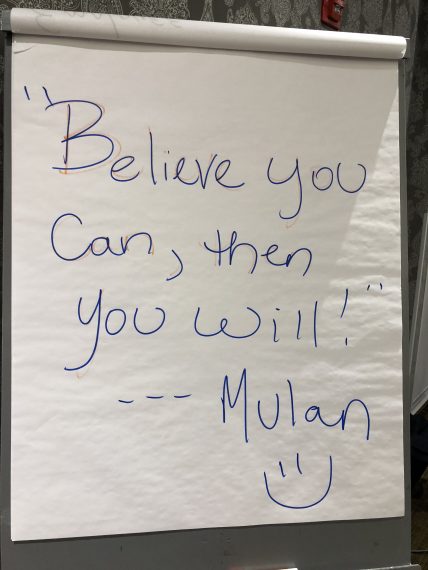 "Believe you
Can, then
you will!"
--- Mulan